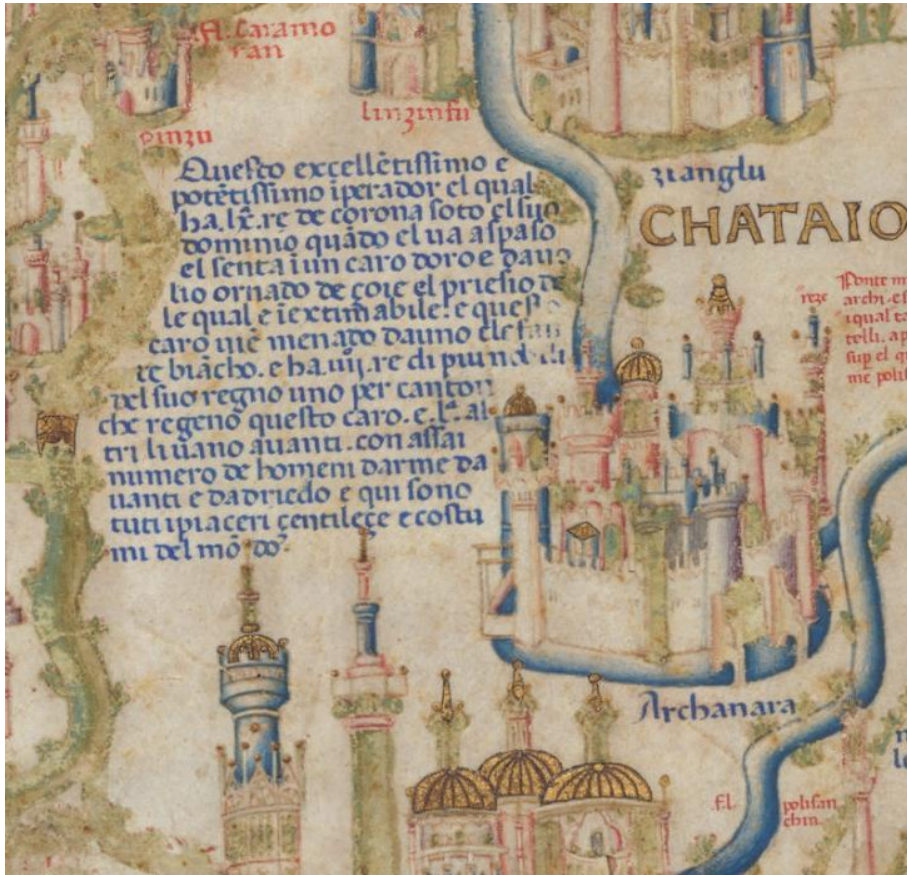 fl. Caramo
ran
pinzu
linzinfu
zianglu
CHATAIO
Questo excellētissimo e
potētissimo īperador el qual
ha .lx̄. re de corona soto el suo
dominio quādo el ua aspaso
el senta ī un caro doro e dauo
lio ornado de çoie el priesio de
le qual e īextimabile. e questo
caro uiē menado dauno elefan
te biācho. e ha .iiij. re di piu nobili
del suo regno uno per canton
che regeno questo caro. e .lᵃ. al
tri li uāno auanti. con assai
numero de homeni darme da
uanti e dadriedo e qui sono
tuti i piaceri çentileçe e costu
mi del mōdo
Ponte m
archi. e s
i qual ta
telli. a p
sup el q
me polis
Archanara
fl. polisan
chin